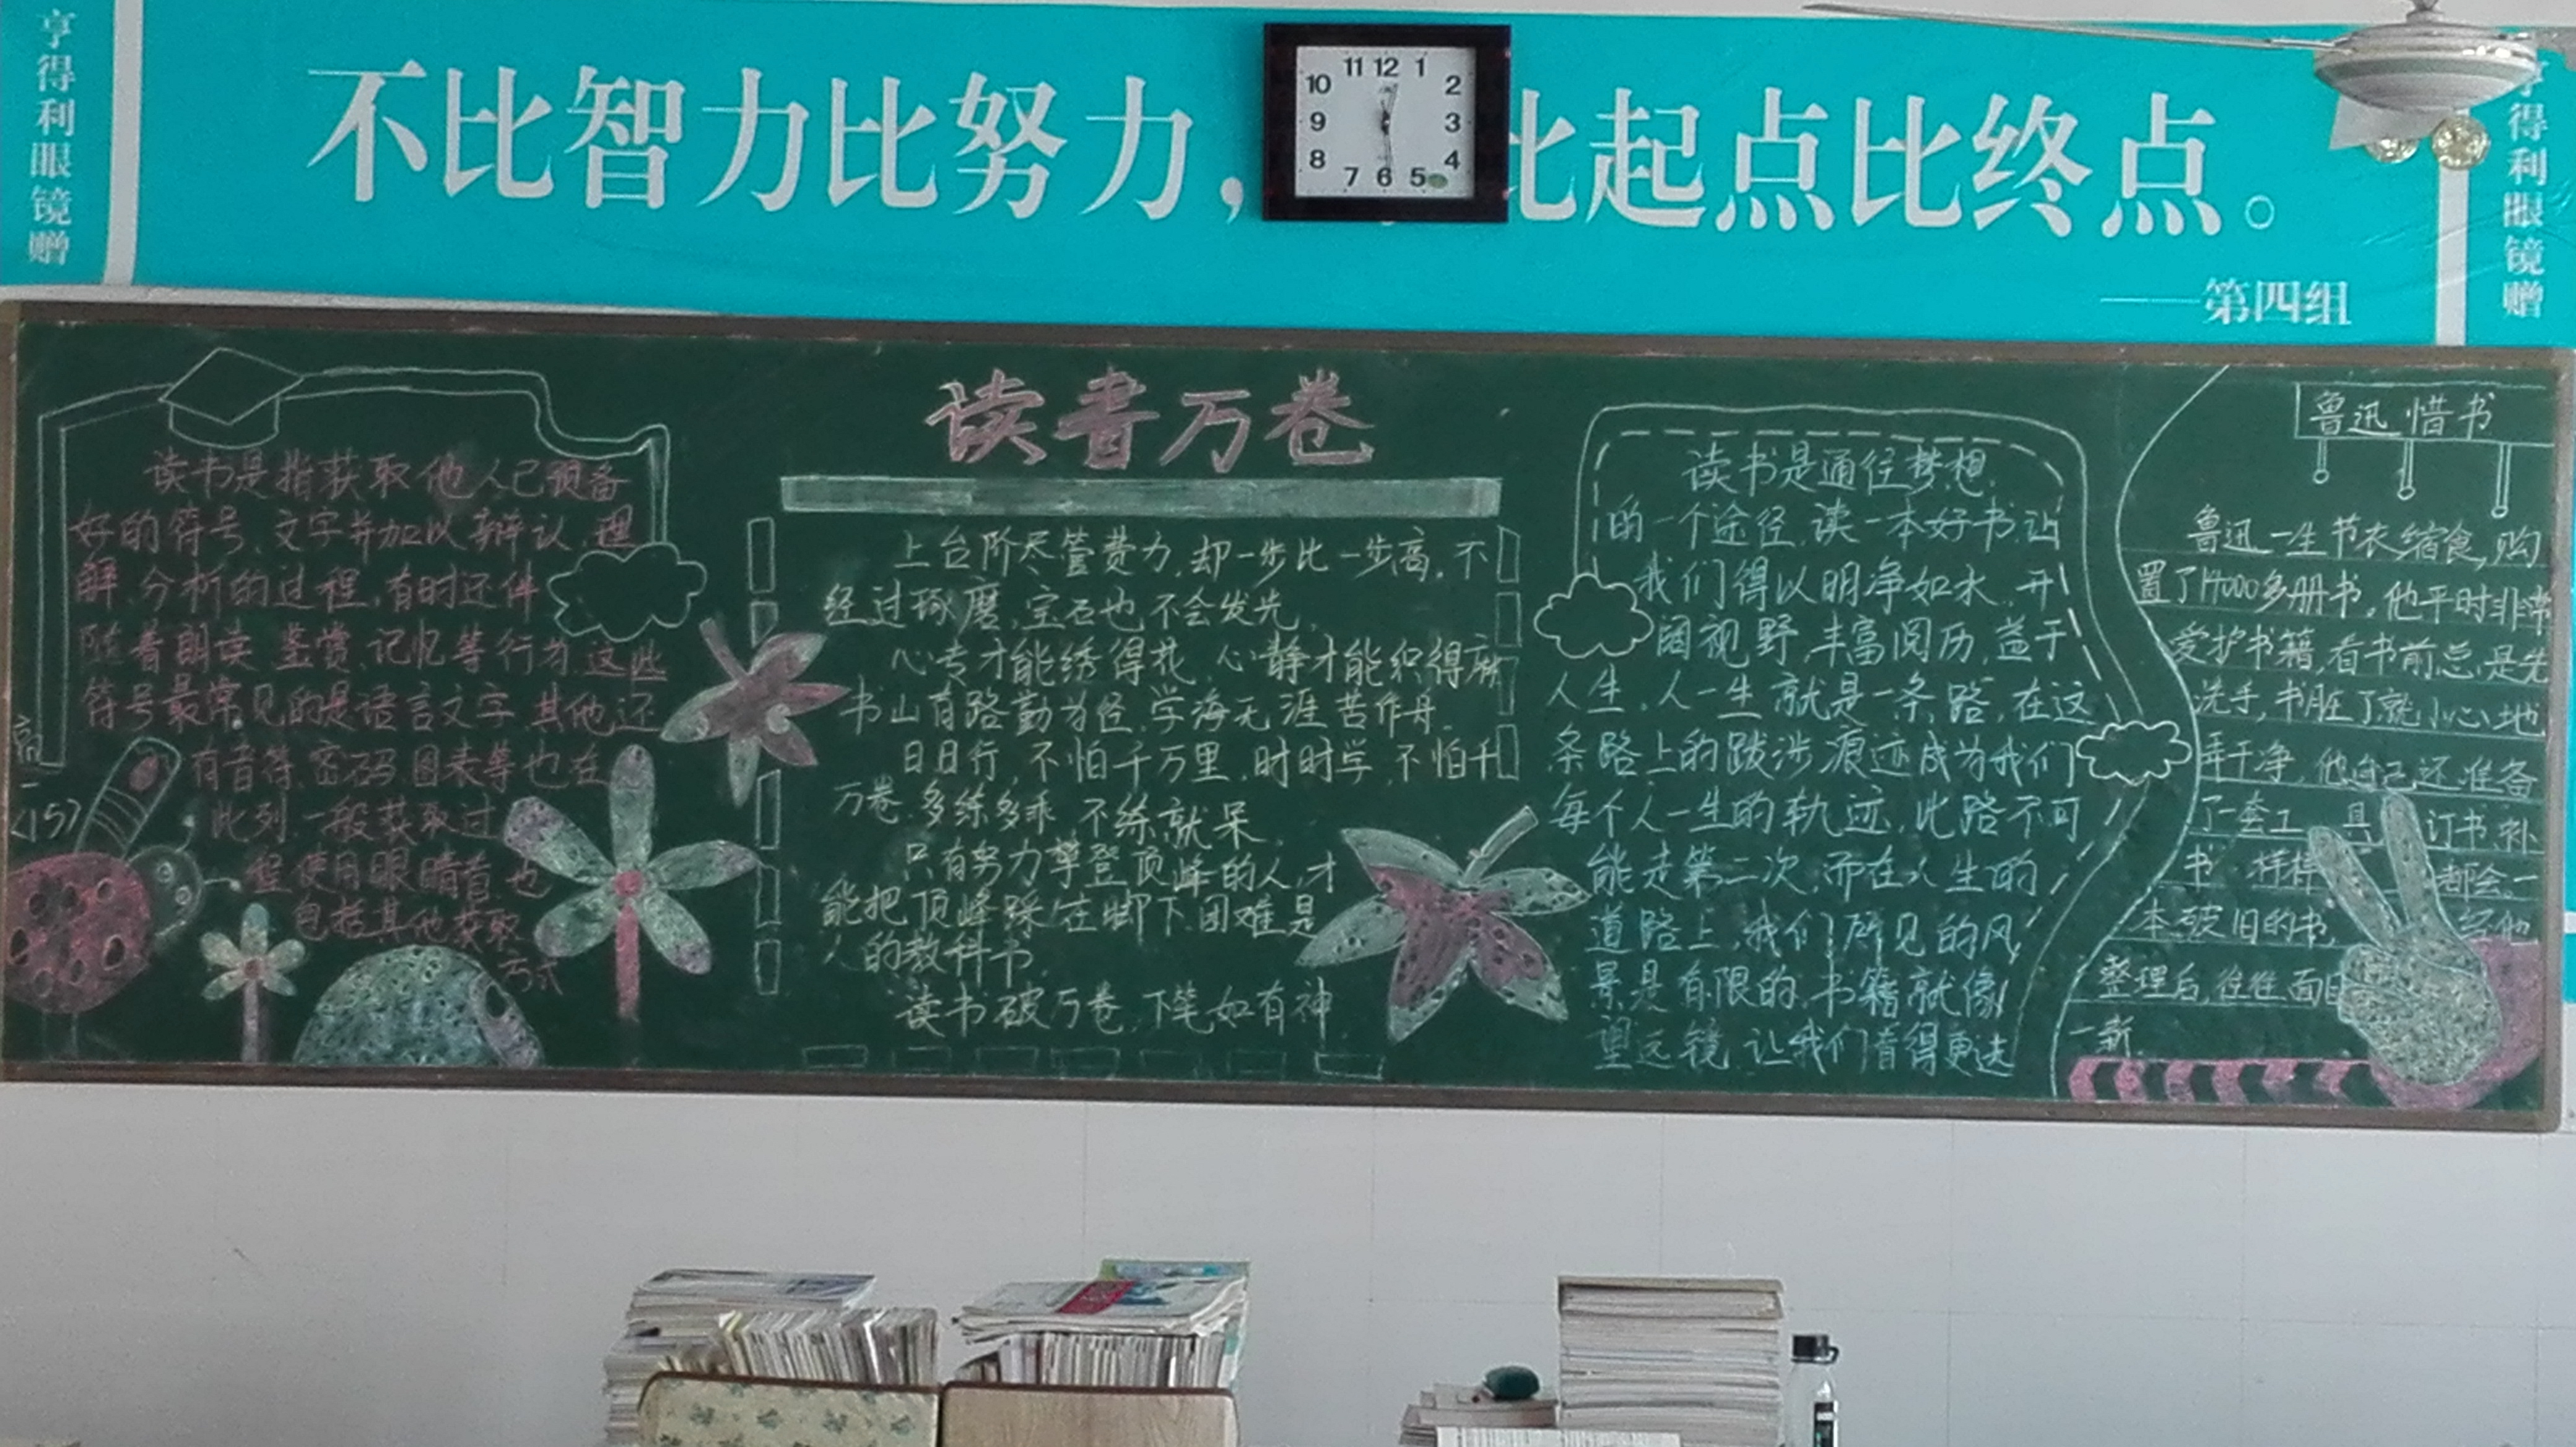 亨得利眼镜赠
不比智力比努力，比起点比终点。
——第四组
亨得利眼镜赠
11 12 1
10 2
9 3
8 4
7 6 5
读书万卷
读书是指获取他人已预备
好的符号、文字并加以辩认、理
解、分析的过程,有时还伴
随着朗读、鉴赏、记忆等行为,这些
符号最常见的是语言文字,其他还
有音符、密码、图表等也在
此列,一般获取过
程使用眼睛看,也
包括其他获取
方式
高
一
<15>
上台阶尽管费力,却一步比一步高,不
经过琢磨,宝石也不会发光.
心专才能绣得花,心静才能织得麻
书山有路勤为径,学海无涯苦作舟.
日日行,不怕千万里,时时学,不怕千
万卷.多练多乖,不练就呆.
只有努力攀登顶峰的人,才
能把顶峰踩在脚下.困难是
人的教科书.
读书破万卷,下笔如有神
读书是通往梦想
的一个途径,读一本好书,让
我们得以明净如水,开
阔视野,丰富阅历,益于
人生.人一生就是一条路,在这
条路上的跋涉痕迹成为我们
每个人一生的轨迹,此路不可
能走第二次,而在人生的
道路上,我们所见的风
景是有限的.书籍就像
望远镜,让我们看得更远
鲁迅惜书
鲁迅一生节衣缩食,购
置了14000多册书。他平时非常
爱护书籍,看书前总是先
洗手,书脏了就小心地
弄干净,他自己还准备
了一套工具 订书、补
书 样样 都会.一
本破旧的书, 经他
整理后,往往面目
一新.